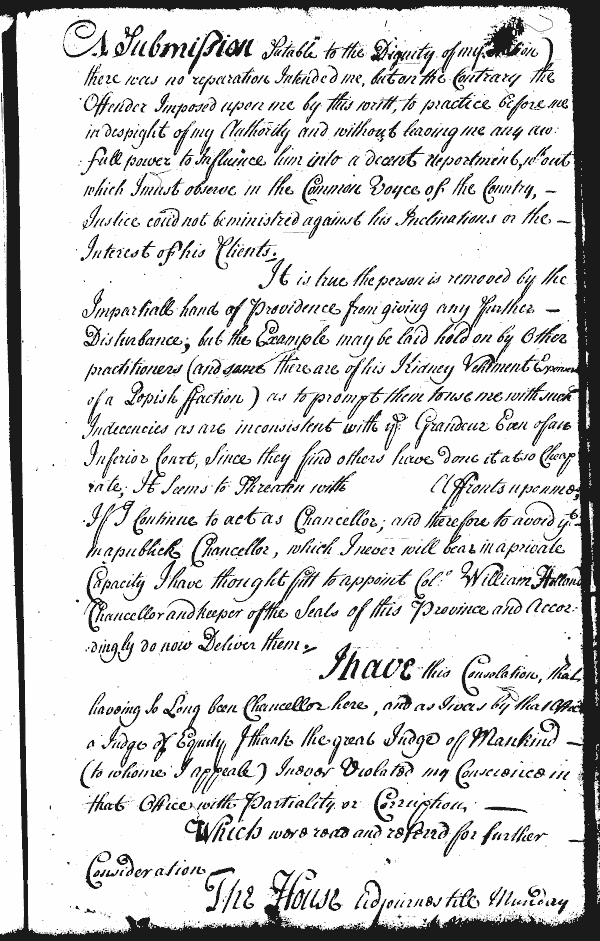 A Submission Sutable to the Dignity of my
there was no reparation Intended me, but on the Contrary the
Offender Imposed upon me by this writt, to practice before me
in despight of my Authority and without leaving me any aw:
full power to Influince him into a decent deportment, wthout
which I must observe in the Common Voyce of the Country, –
Justice could not be ministred against his Inclinations or the –
Interest of his Clients.
It is true the person is removed by the
Impartiall hand of Providence from giving any further –
Disturbance; but the Example may be laid hold on by Other
practitioners (and some there are of his Kidney Vehement
of a Popish ffaction) as to prompt them to use me with such
Indecencies as are inconsistent with ye Grandeur Even of an
Inferior Court, Since they find others have done it at so Cheap
rate; It Seems to Threaten with Affronts upon me;
If I Continue to act as Chancellor; and therefore to avoid yt
in a publick Chancellor, which I never will bear in a private
Capacity I have thought fitt to appoint Colo William Holland
Chancellor and keeper of the Seals of this Province and Accor-
dingly do now Deliver them.
I have this Consolation, that
having so Long been Chancellor here, and as I was by that Office
a Judge of Equity I thank the great Judge of Mankind –
(to whome I appeale) I never Violated my Conscience in
that Office with Partiality or Corruption. —
Which were read and referrd for further
Consideration
The House adjournes till Munday